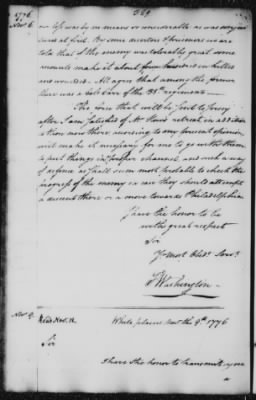 1776
Nov. 6.
our loss was by no means so considerable as was conjec
tured at first. By some deserters & prisoners we are
told that of the enemy was tolerably great some
accounts make it about four hundred in killed
and wounded. All agree that among the former
there was a Col. Carr of the 35th regiment.
The force that will be sent to Jersey
after I am satisfied of Mr Howe's retreat in addition
to those now there according to my present opinion
will make it necessary for me to go with them
to put things in proper channel and such a way
of defence as shall seem most probable to check the
progress of the enemy in case they should attempt
a descent there or a move towards Philadelphia
I have the honor to be
with great respect
Sir
Yr most Obedt Servt
G Washington
Nov. 9.
Read Nov. 12.
White plains Nov the 9th 1776
Sir
I have the honor to transmit you